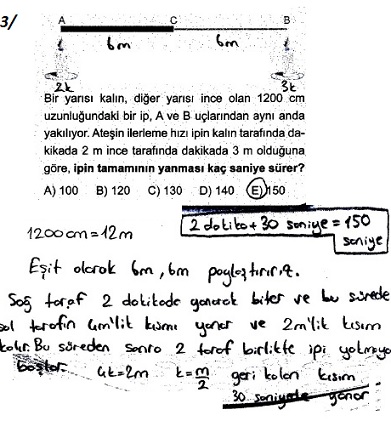 3/
A C B
6m 6m
2k 3k
Bir yarısı kalın, diğer yarısı ince olan 1200 cm
uzunluğundaki bir ip, A ve B uçlarından aynı anda
yakılıyor. Ateşin ilerleme hızı ipin kalın tarafında da-
kikada 2 m ince tarafında dakikada 3 m olduğuna
göre, ipin tamamının yanması kaç saniye sürer?
A) 100 B) 120 C) 130 D) 140 E) 150
2 dakika + 30 saniye = 150
saniye
1200 cm = 12m
Eşit olarak 6m, 6m paylaştırırız.
Sağ taraf 2 dakikada yanarak biter ve bu sürede
sol tarafın 4m'lik kısmı yanar ve 2m'lik kısım
kalır. Bu süreden sonra 2 taraf birlikte ipi yakmaya
başlar. 4k=2m k=m/2 geri kalan kısım
30 saniyede yanar